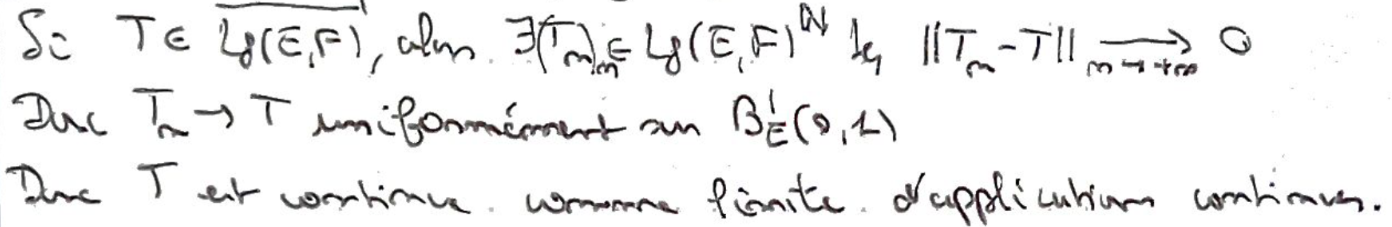 Si T ∈ \overline{L_f(E,F)}, alors ∃(T_n)_n ∈ L_f(E,F)^ℕ tq ||T_n - T|| ⟶_{n→+∞} 0
Donc T_n → T uniformément sur B'_E(0,1)
Donc T est continue comme limite d'applications continues.